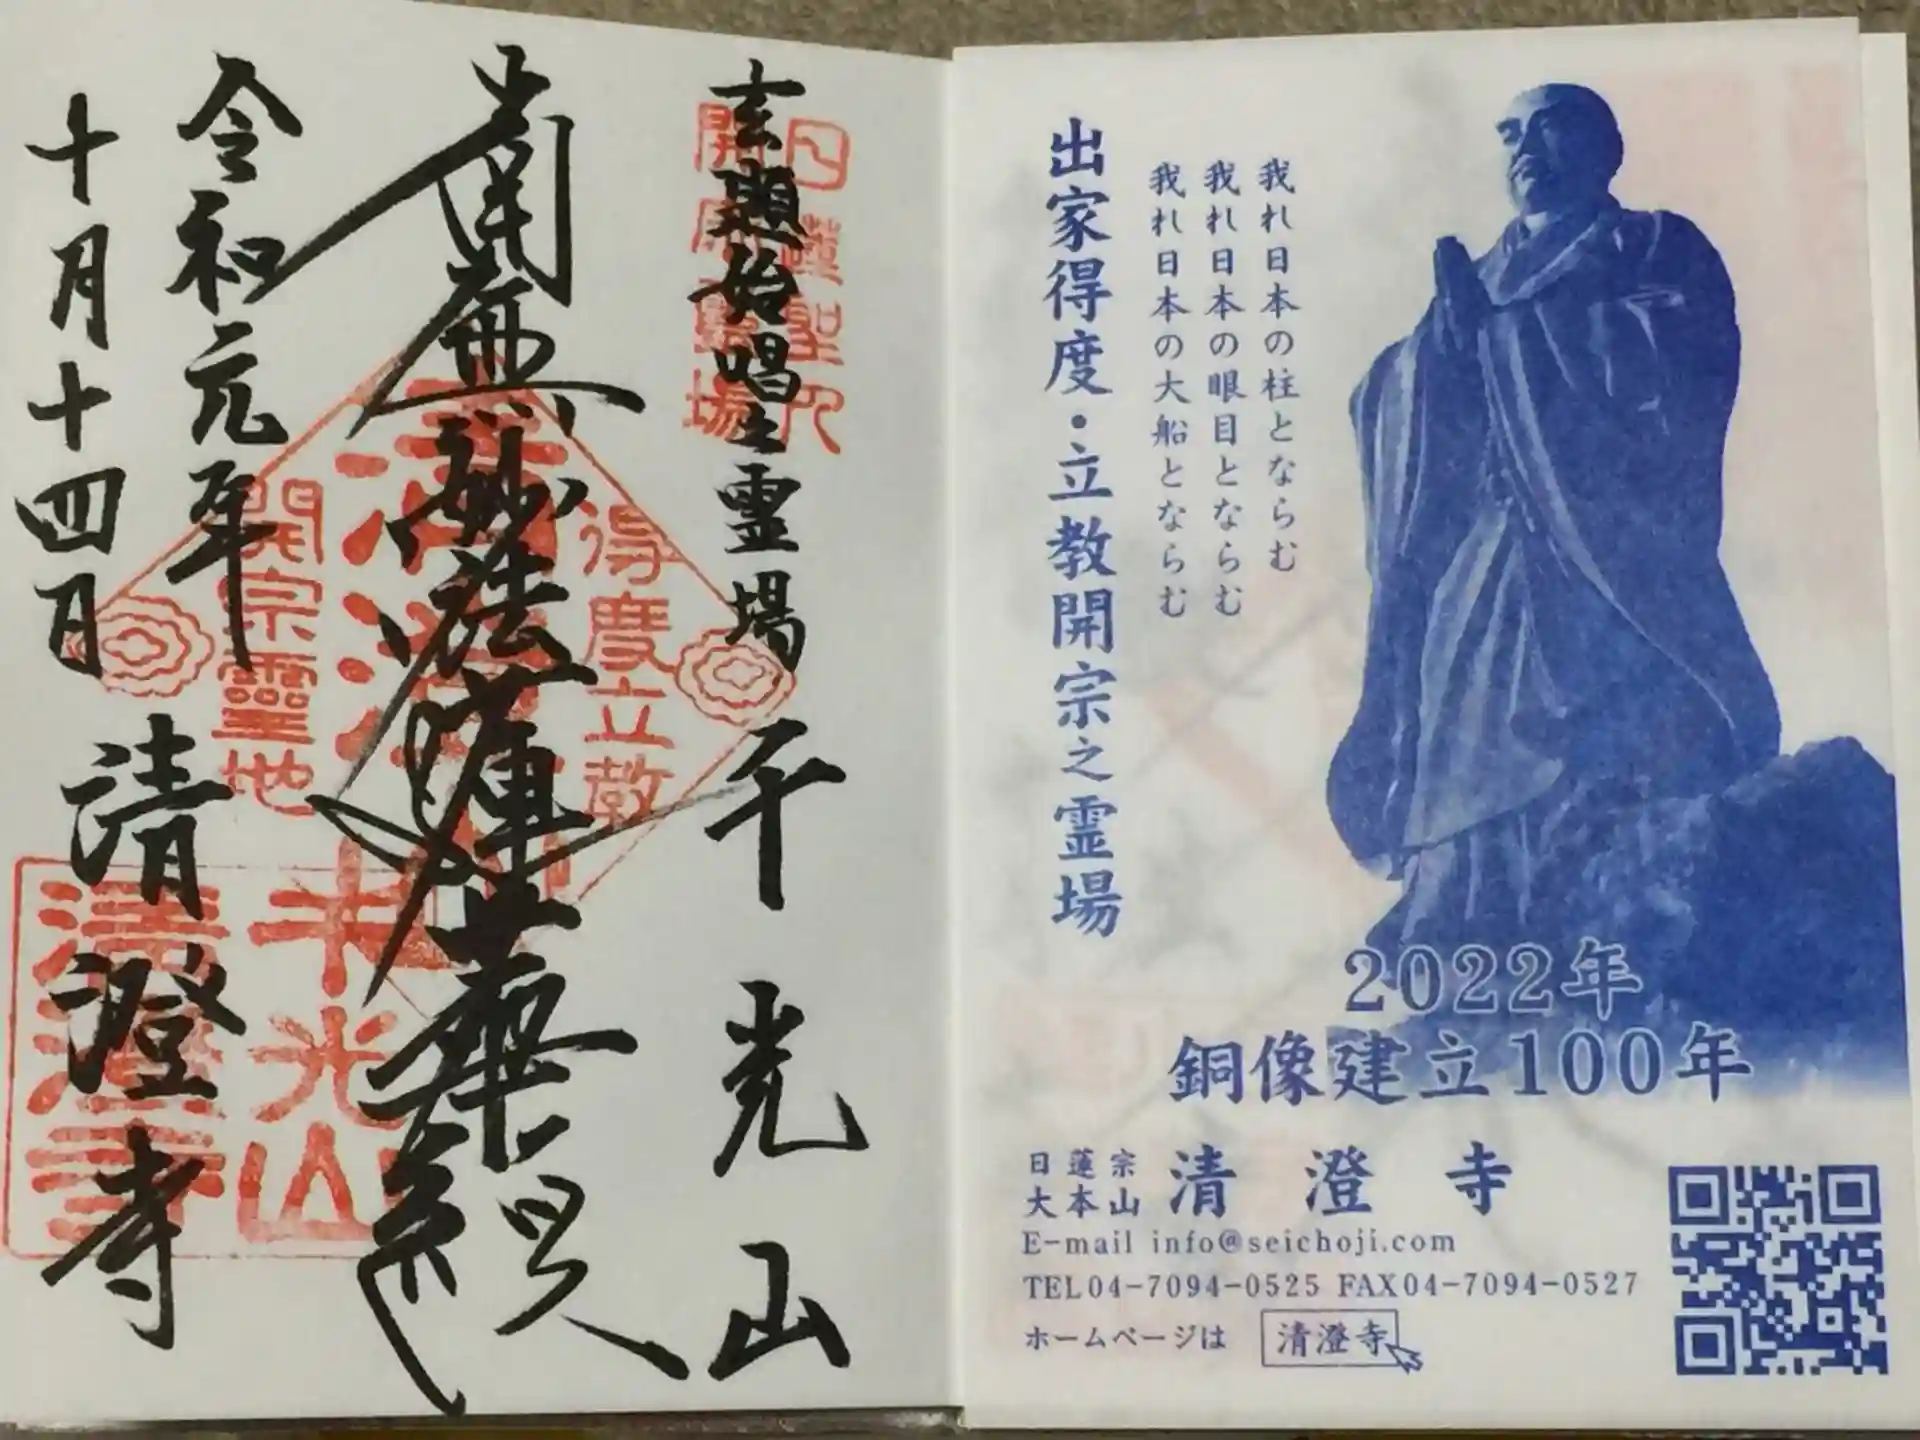 玄題始唱之霊場
千光山
南無妙法蓮華経
令和元年
十月十四日
清澄寺
日蓮聖人
開宗霊場
得度立教
開宗霊地
清澄山
千光山
清澄寺
我れ日本の柱とならむ
我れ日本の眼目とならむ
我れ日本の大船とならむ
出家得度・立教開宗之霊場
2022年
銅像建立100年
日蓮宗
大本山
清澄寺
E-mail info@seichoji.com
TEL04-7094-0525 FAX04-7094-0527
ホームページは 清澄寺